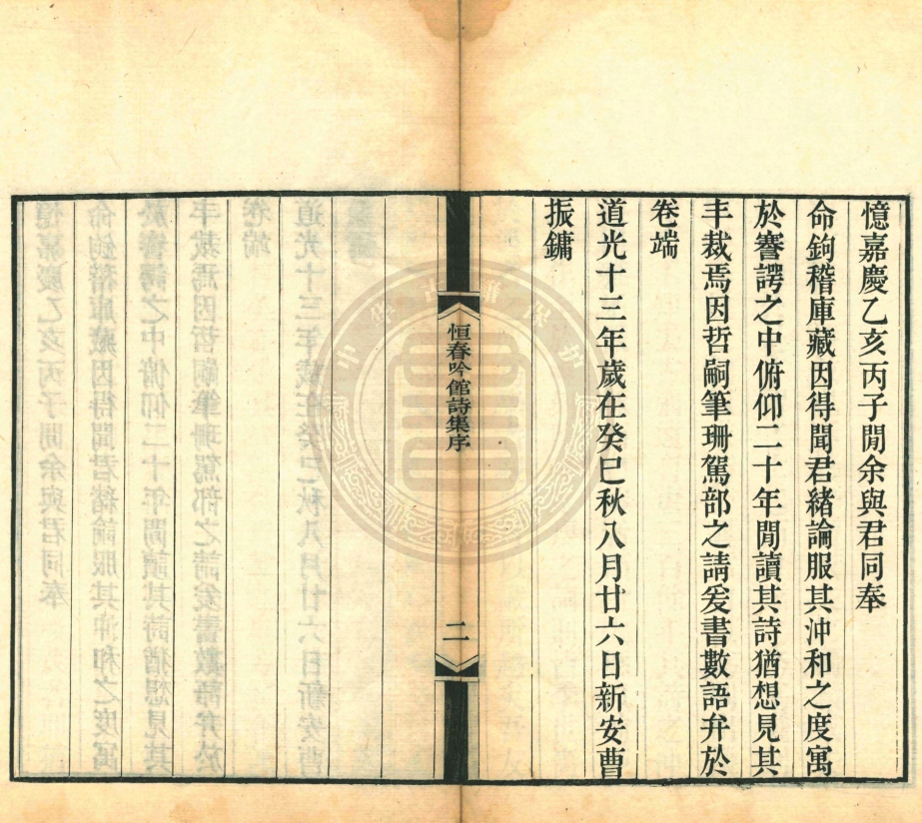 憶嘉慶乙亥丙子閒余與君同奉
命鉤稽庫藏因得聞君緒論服其沖和之度寓
於謇諤之中俯仰二十年閒讀其詩猶想見其
丰裁焉因哲嗣筆珊駕部之請爰書數語弁於
卷端
道光十三年歲在癸巳秋八月廿六日新安曹
振鏞
恒春吟館詩集序
二